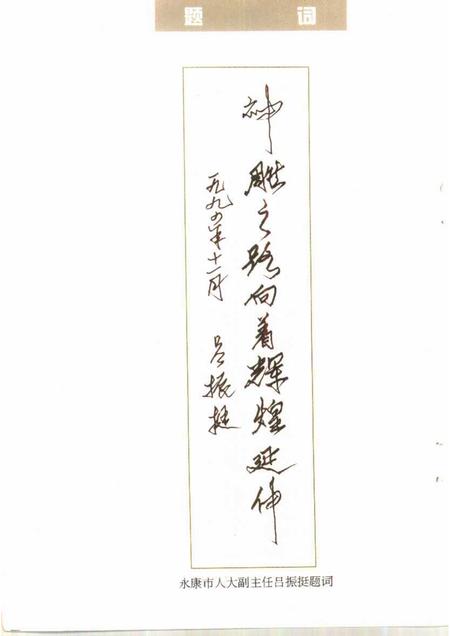 题词
神雕之路向着辉煌延伸
一九九四年十一月 吕振挺
永康市人大副主任吕振挺题词